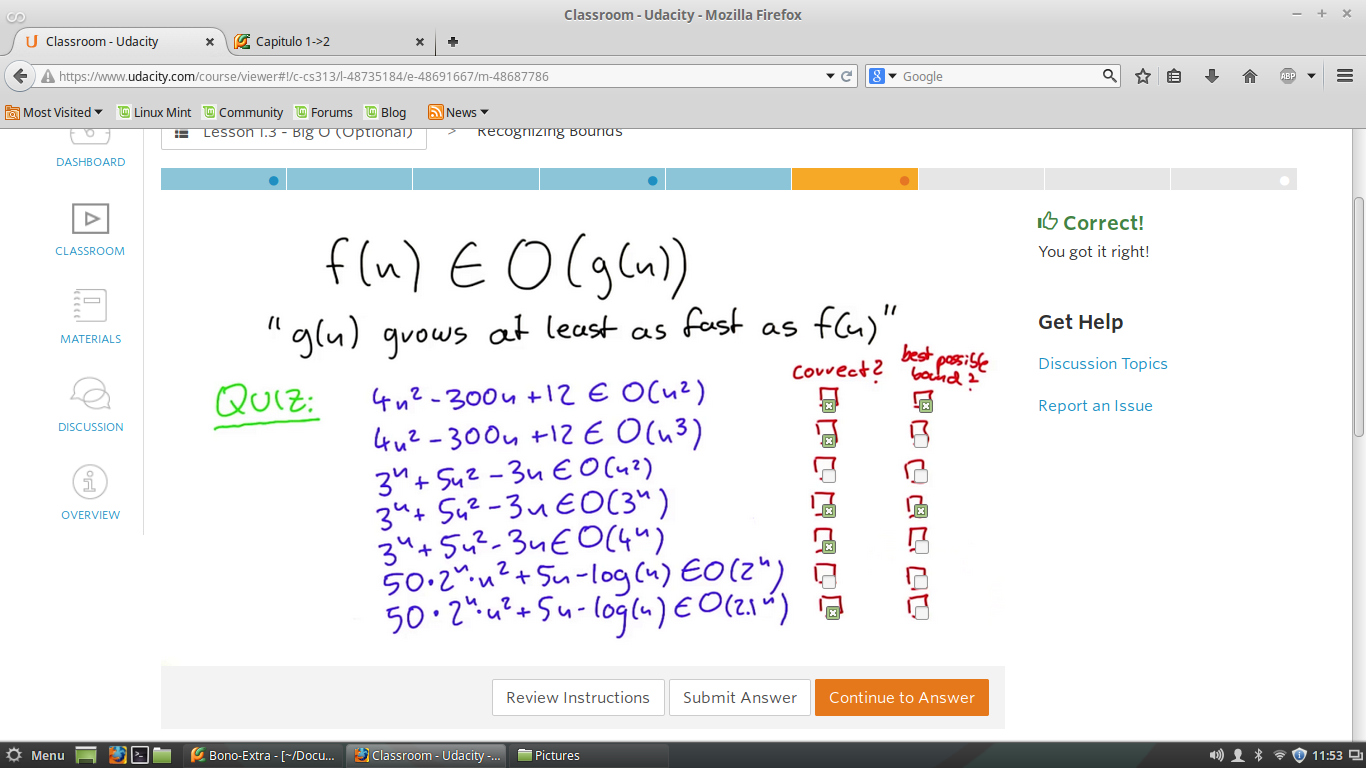 Classroom - Udacity - Mozilla Firefox
Classroom - Udacity
Capitulo 1->2
https://www.udacity.com/course/viewer#!/c-cs313/l-48735184/e-48691667/m-48687786
Google
ABP
Most Visited Linux Mint Community Forums Blog News
Lesson 1.3 - Big O (Optional) > Recognizing Bounds
DASHBOARD
CLASSROOM
MATERIALS
DISCUSSION
OVERVIEW
f(n) ∈ O(g(n))
"g(n) grows at least as fast as f(n)"
correct?
best possible
bound?
QUIZ:
4n² - 300n + 12 ∈ O(n²)
4n² - 300n + 12 ∈ O(n³)
3ⁿ + 5n² - 3n ∈ O(n²)
3ⁿ + 5n² - 3n ∈ O(3ⁿ)
3ⁿ + 5n² - 3n ∈ O(4ⁿ)
50·2ⁿ·n² + 5n - log(n) ∈ O(2ⁿ)
50·2ⁿ·n² + 5n - log(n) ∈ O(2.1ⁿ)
Correct!
You got it right!
Get Help
Discussion Topics
Report an Issue
Review Instructions
Submit Answer
Continue to Answer
Menu
Bono-Extra - [~/Docu...
Classroom - Udacity -...
Pictures
11:53